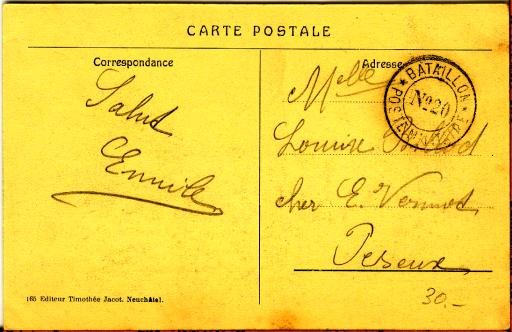 CARTE POSTALE
Correspondance
Adresse
Salut
Emile
Melle
Louise
chez E. Vermot
Peseux
BATAILLON
No 20
POSTE MILITAIRE
165 Editeur Timothée Jacot. Neuchâtel.
30.-